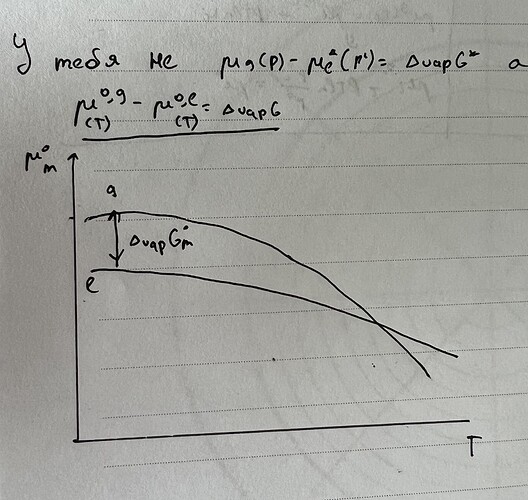 У тебя не μg(p) - μe*(p') = ΔvapG* а
μ°,g(T) - μ°,l(T) = ΔvapG
μ°m
g
ΔvapG°m
l
T